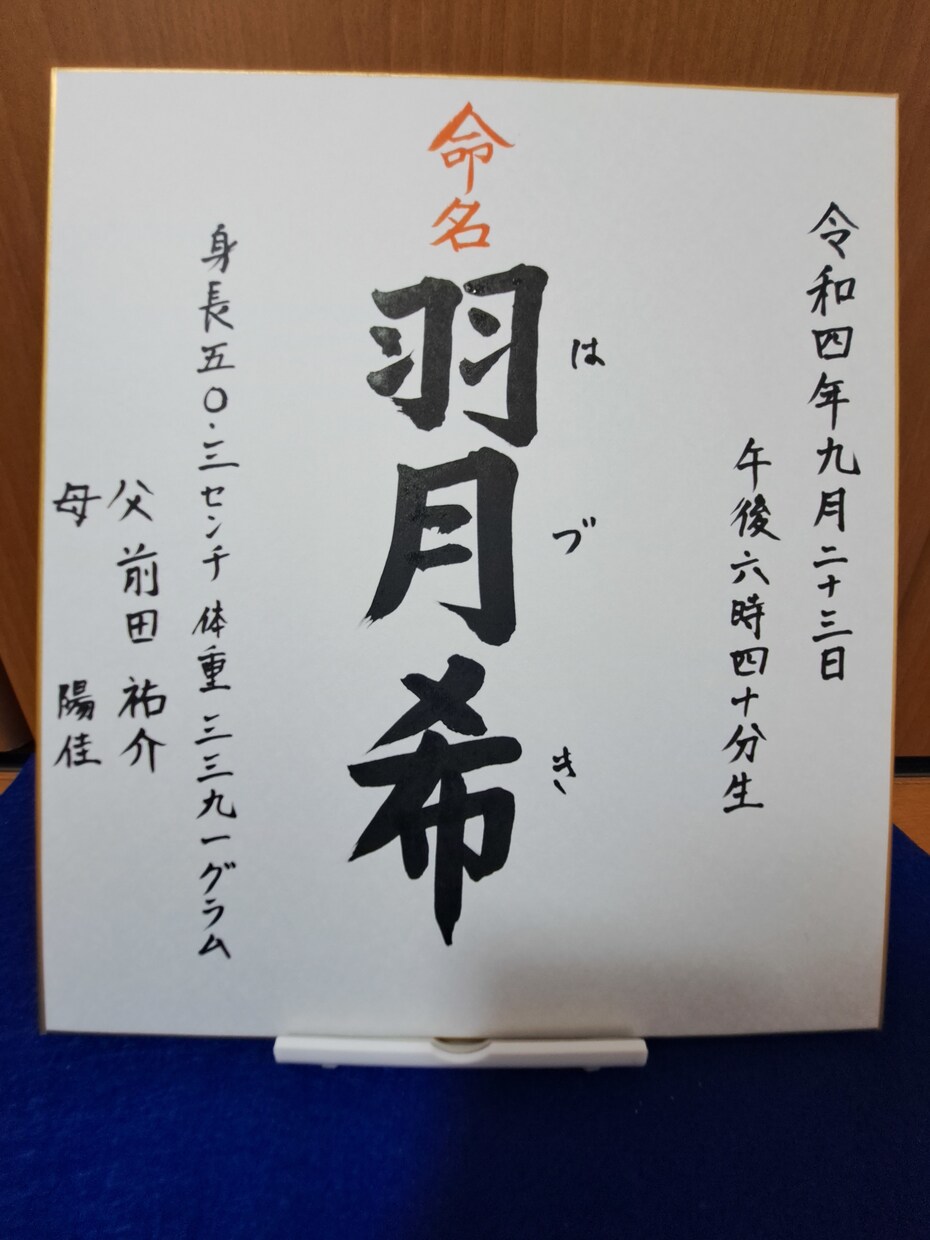 令和四年九月二十三日
午後六時四十分生
命名
羽月希
はづき
身長五〇.三センチ 体重三三九一グラム
父 前田 祐介
母 陽佳